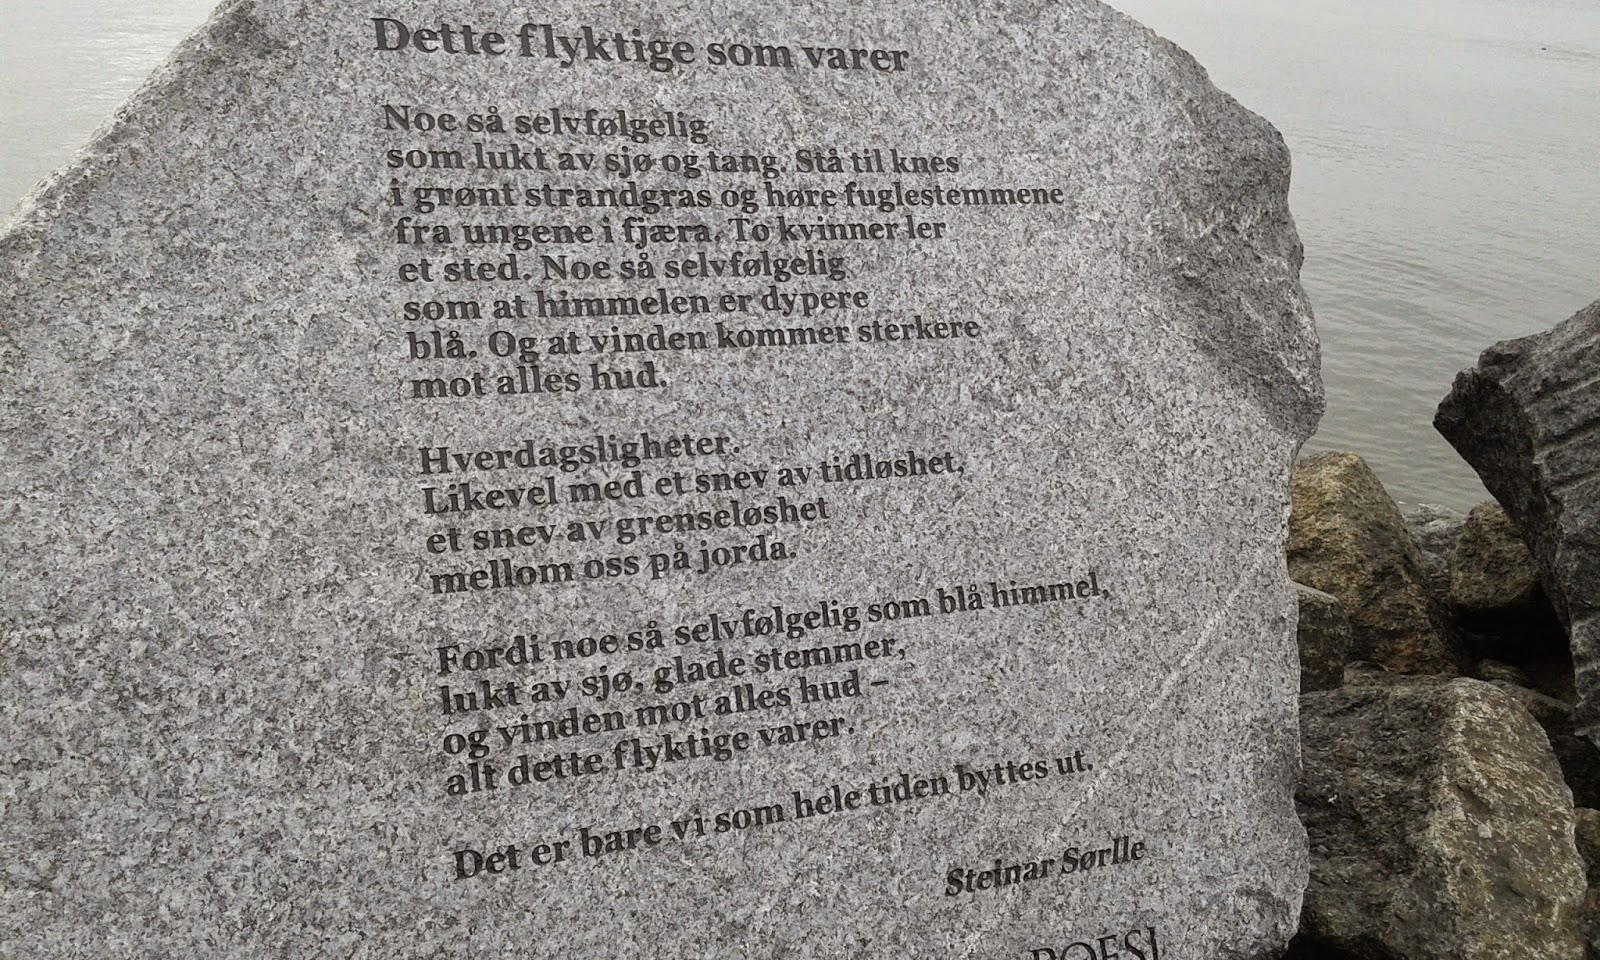 Dette flyktige som varer
Noe så selvfølgelig
som lukt av sjø og tang. Stå til knes
i grønt strandgras og høre fuglestemmene
fra ungene i fjæra. To kvinner ler
et sted. Noe så selvfølgelig
som at himmelen er dypere
blå. Og at vinden kommer sterkere
mot alles hud.
Hverdagsligheter.
Likevel med et snev av tidløshet,
et snev av grenseløshet
mellom oss på jorda.
Fordi noe så selvfølgelig som blå himmel,
lukt av sjø, glade stemmer,
og vinden mot alles hud –
alt dette flyktige varer.
Det er bare vi som hele tiden byttes ut.
Steinar Sørlle
POESI